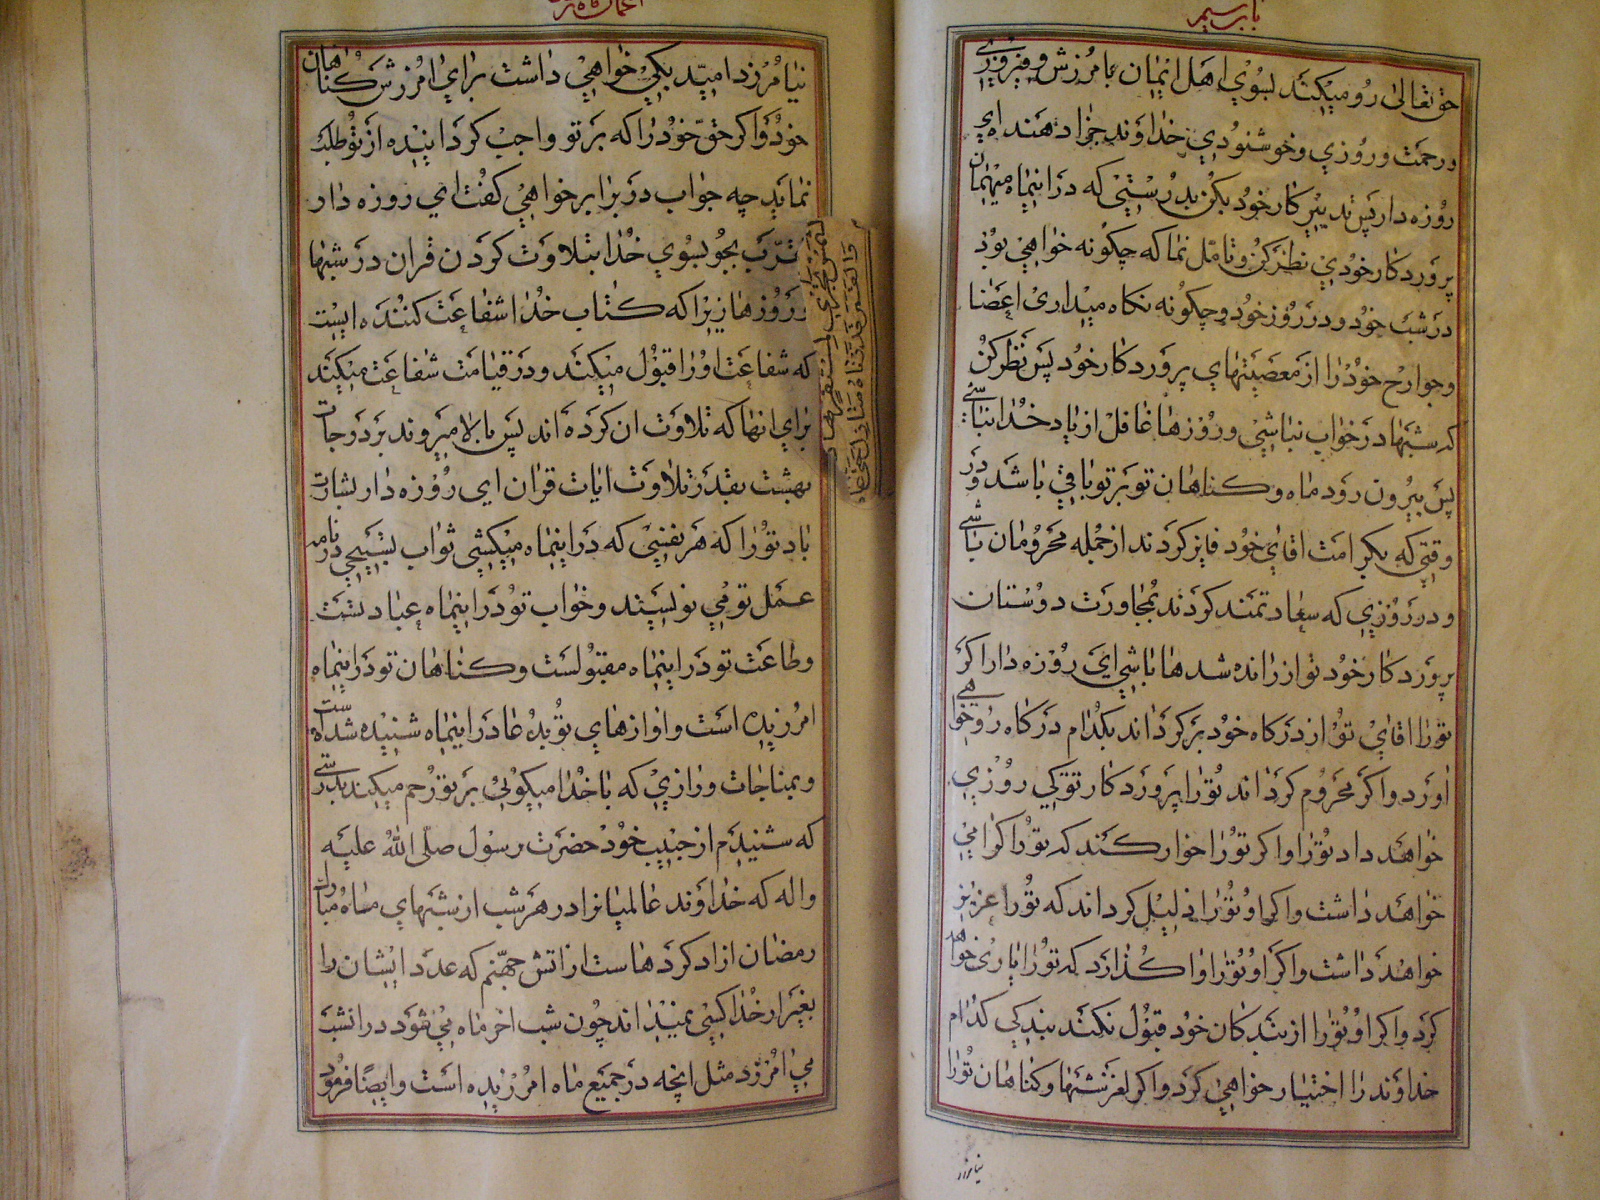 باب سیم
حق تعالی رو میکند بسوی اهل ایمان بامرزش و فیروزی
و رحمت و روزی و خوشنودی خداوند جزا دهند ای
روزه دار پس تدبیر کار خود بکن بدرستی که در اینماه میهمان
پروردکار خودی نظر کن و تامل نما که چکونه خواهی بود
در شب خود و در روز خود و چکونه نکاه میداری اعضا
و جوارح خود را از معصیتهای پروردکار خود پس نظر کن
که شبها در خواب نباشی و روزها غافل از یاد خدا نباشی
پس بیرون رود ماه و کناهان تو بر تو باقی باشد و در
وقتی که بکرامت اقای خود فایز کردند از جمله محرومان باشی
و در روزی که سعادتمند کردند بمجاورت دوستان
پروردکار خود تو از رانده شدها باشی ای روزه دار اکر
تو را اقای تو از درکاه خود برکرداند بکدام درکاه رو خواهی
اورد و اکر محروم کرداند تو را پروردکار تو کی روزی
خواهد داد تو را و اکر تو را خوار کند که تو را کرامی
خواهد داشت و اکر او تو را ذلیل کرداند که تو را عزیز
خواهد داشت و اکر او تو را وا کذارد که تو را یاری خواهد
کرد و اکر او تو را از بندکان خود قبول نکند بندکی کدام
خداوند را اختیار خواهی کرد و اکر لغزشها و کناهان تو را
نیامرزد
اعمال ماه
نیامرزد امید بکی خواهی داشت برای امرزش کناهان
خود و اکر حق خود را که بر تو واجب کردانیده از تو طلب
نماید چه جواب در برابر خواهی کفت ای روزه دار
تقرب بجو بسوی خدا بتلاوت کردن قران در شبها
و روزها زیرا که کتاب خدا شفاعت کننده ایست
که شفاعت او را قبول میکند و در قیامت شفاعت میکند
برای انها که تلاوت ان کرده اند پس بالا میروند بر درجات
بهشت بقدر تلاوت ایات قران ای روزه دار بشارت
باد تو را که هر نفسی که در اینماه میکشی ثواب تسبیحی در نامه
عمل تو می نویسند و خواب تو در اینماه عبادتست
و طاعت تو در اینماه مقبولست و کناهان تو در اینماه
امرزیده است و اوازهای تو بدعا در اینماه شنیده شده است
و بمناجات و رازی که با خدا میکوئی بر تو رحم میکند بدرستی
که شنیدم از حبیب خود حضرت رسول صلی الله علیه
و اله که خداوند عالمیانرا در هر شب از شبهای ماه مبارک
رمضان ازاد کردهاست از اتش جهنم که عدد ایشان را
بغیر از خدا کسی نمیداند چون شب اخر ماه می شود در انشب
می امرزد مثل انچه در جمیع ماه امرزیده است و ایضا فرمود
و الشمس تجری لمستقر لها
و القمر قدرناه منازل حتی عاد